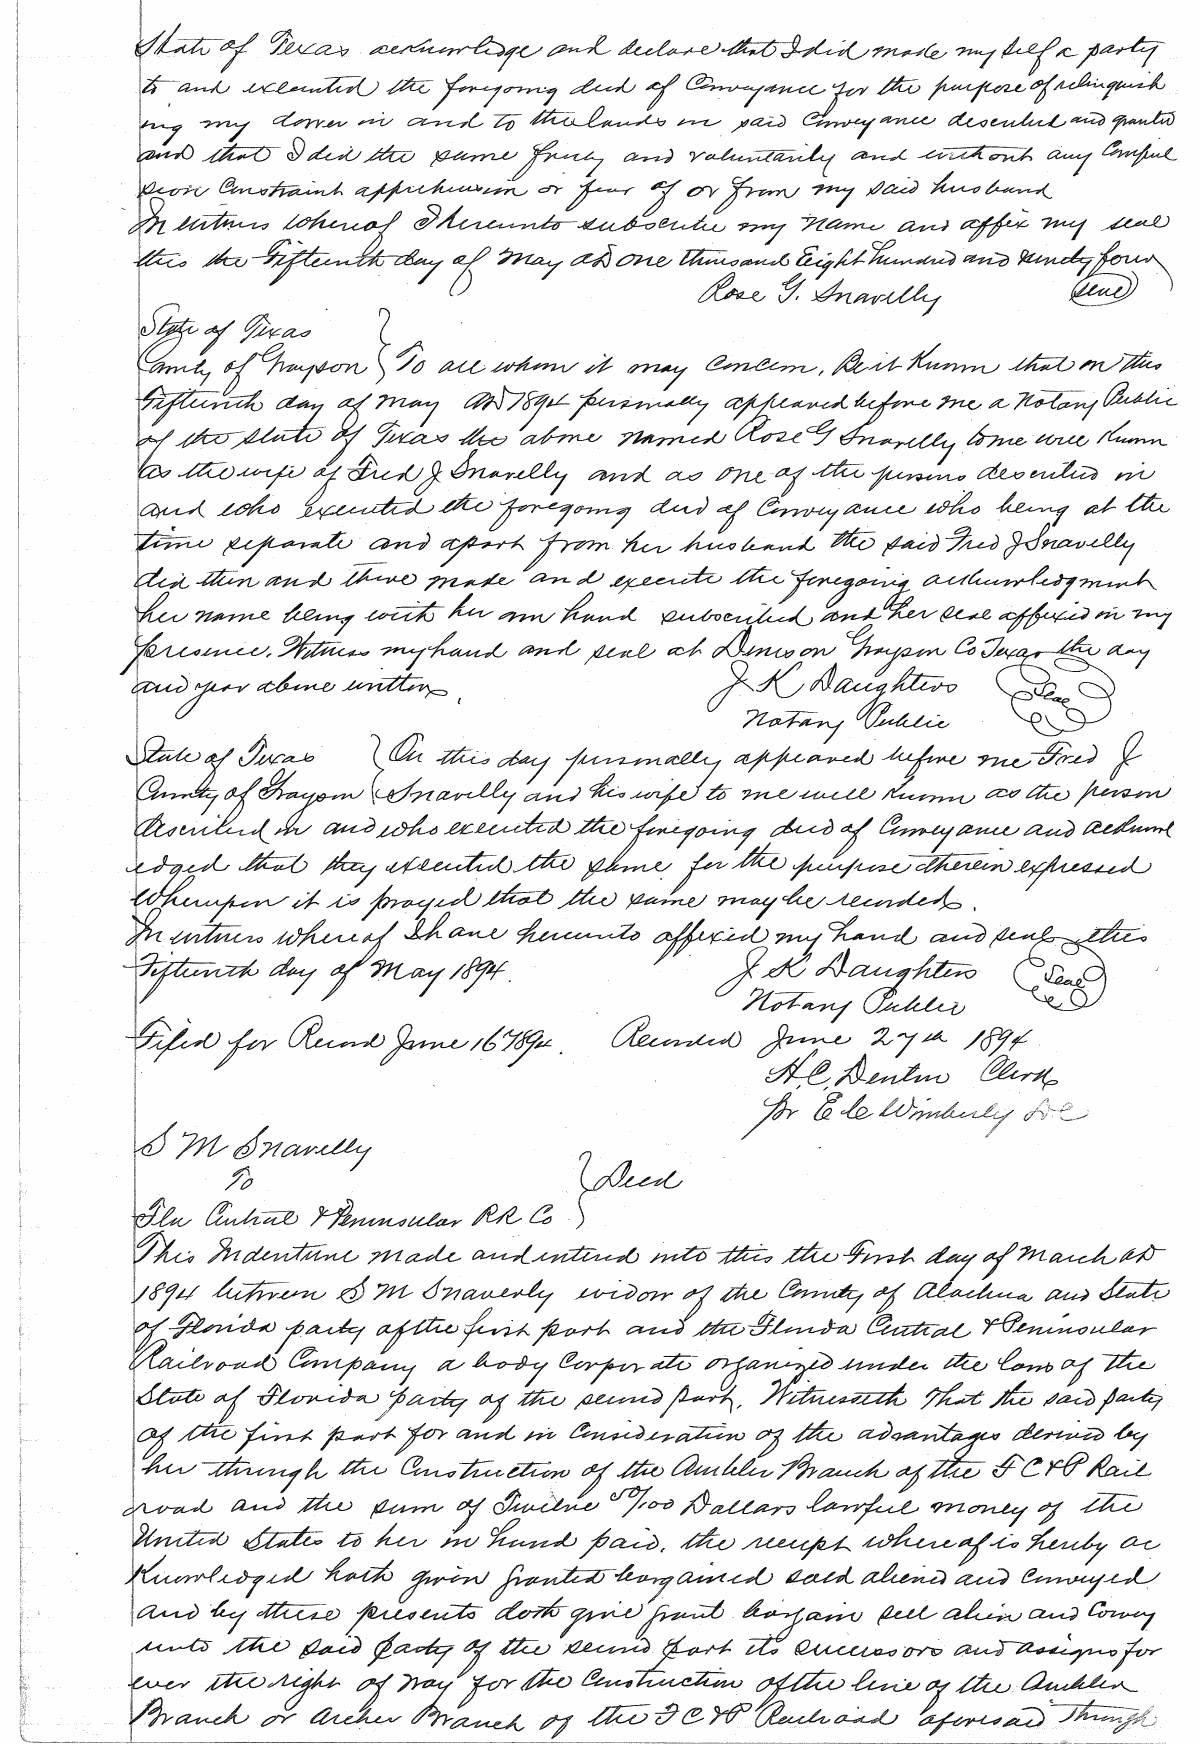 State of Texas acknowledge and declare that I did made myself a party
to and executed the foregoing deed of Conveyance for the purpose of relinquish
ing my dower in and to the lands in said Conveyance described and granted
and that I did the same freely and voluntarily and without any Compul
sion Constraint apprehension or fear of or from my said husband
In witness whereof I hereunto subscribe my name and affix my seal
this the Fifteenth day of May AD one thousand Eight hundred and ninety four
Rose G. Snavelly (seal)
State of Texas }
County of Grayson } To all whom it may concern, Be it Known that on this
Fifteenth day of May AD 1894 personally appeared before me a Notary Public
of the State of Texas the above named Rose G Snavelly to me well Known
as the wife of Fred J Snavelly and as one of the persons described in
and who executed the foregoing deed of Conveyance who being at the
time separate and apart from her husband the said Fred J Snavelly
did then and there made and execute the foregoing acknowledgment
her name being with her own hand subscribed and her seal affixed in my
presence. Witness my hand and seal at Denison Grayson Co Texas the day
and year above written.
J K Daughters (Seal)
Notary Public
State of Texas } On this day personally appeared before me Fred J
County of Grayson } Snavelly and his wife to me well Known as the person
described in and who executed the foregoing deed of Conveyance and acknowl
edged that they executed the same for the purpose therein expressed
Whereupon it is prayed that the same may be recorded.
In witness whereof I have hereunto affixed my hand and seal this
Fifteenth day of May 1894.
J K Daughters (Seal)
Notary Public
Filed for Record June 16 1894. Recorded June 27th 1894
H.C. Denton Clerk
pr E C Wimberly D C
S M Snavelly
To } Deed
Fla Central & Peninsular RR Co }
This Indenture made and entered into this the First day of March AD
1894 between S M Snaverly widow of the County of Alachua and State
of Florida party of the first part and the Florida Central & Peninsular
Railroad Company a body Corporate organized under the laws of the
State of Florida party of the second part, Witnesseth That the said party
of the first part for and in Consideration of the advantages derived by
her through the Construction of the Ambler Branch of the F C & P Rail
road and the sum of Twelve 50/100 Dollars lawful money of the
United States to her in hand paid, the receipt whereof is hereby ac
Knowledged hath given granted bargained sold aliened and Conveyed
and by these presents doth give grant bargain sell alien and Convey
unto the said party of the second part its successors and assigns for
ever the right of way for the Construction of the line of the Ambler
Branch or Archer Branch of the F C & P Railroad aforesaid through